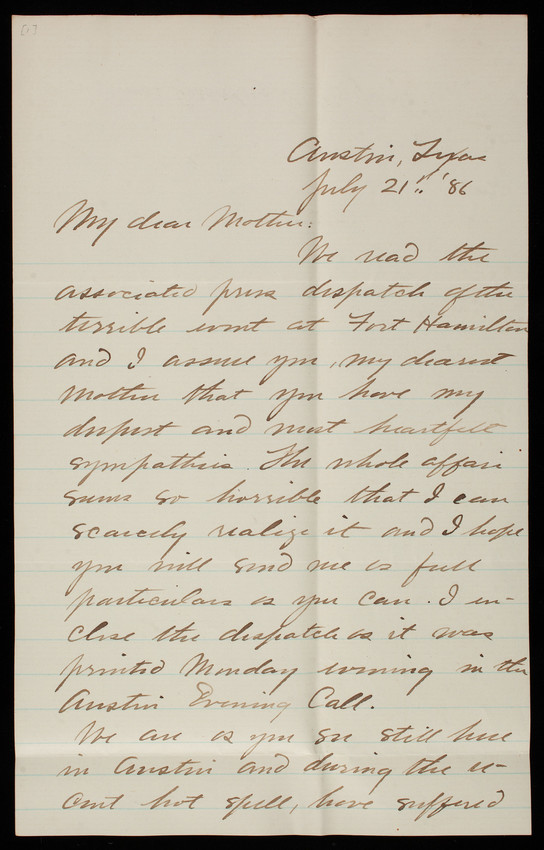 [1]
Austin, Texas
July 21".' '86
My dear Mother:
We read the
associated press dispatch of the
terrible event at Fort Hamilton
and I assure you, my dearest
Mother that you have my
deepest and most heartfelt
sympathies. The whole affair
seems so horrible that I can
scarcely realize it and I hope
you will send me as full
particulars as you can. I en-
close the dispatch as it was
printed Monday evening in the
Austin Evening Call.
We are as you see still here
in Austin and during the re-
cent hot spell, have suffered